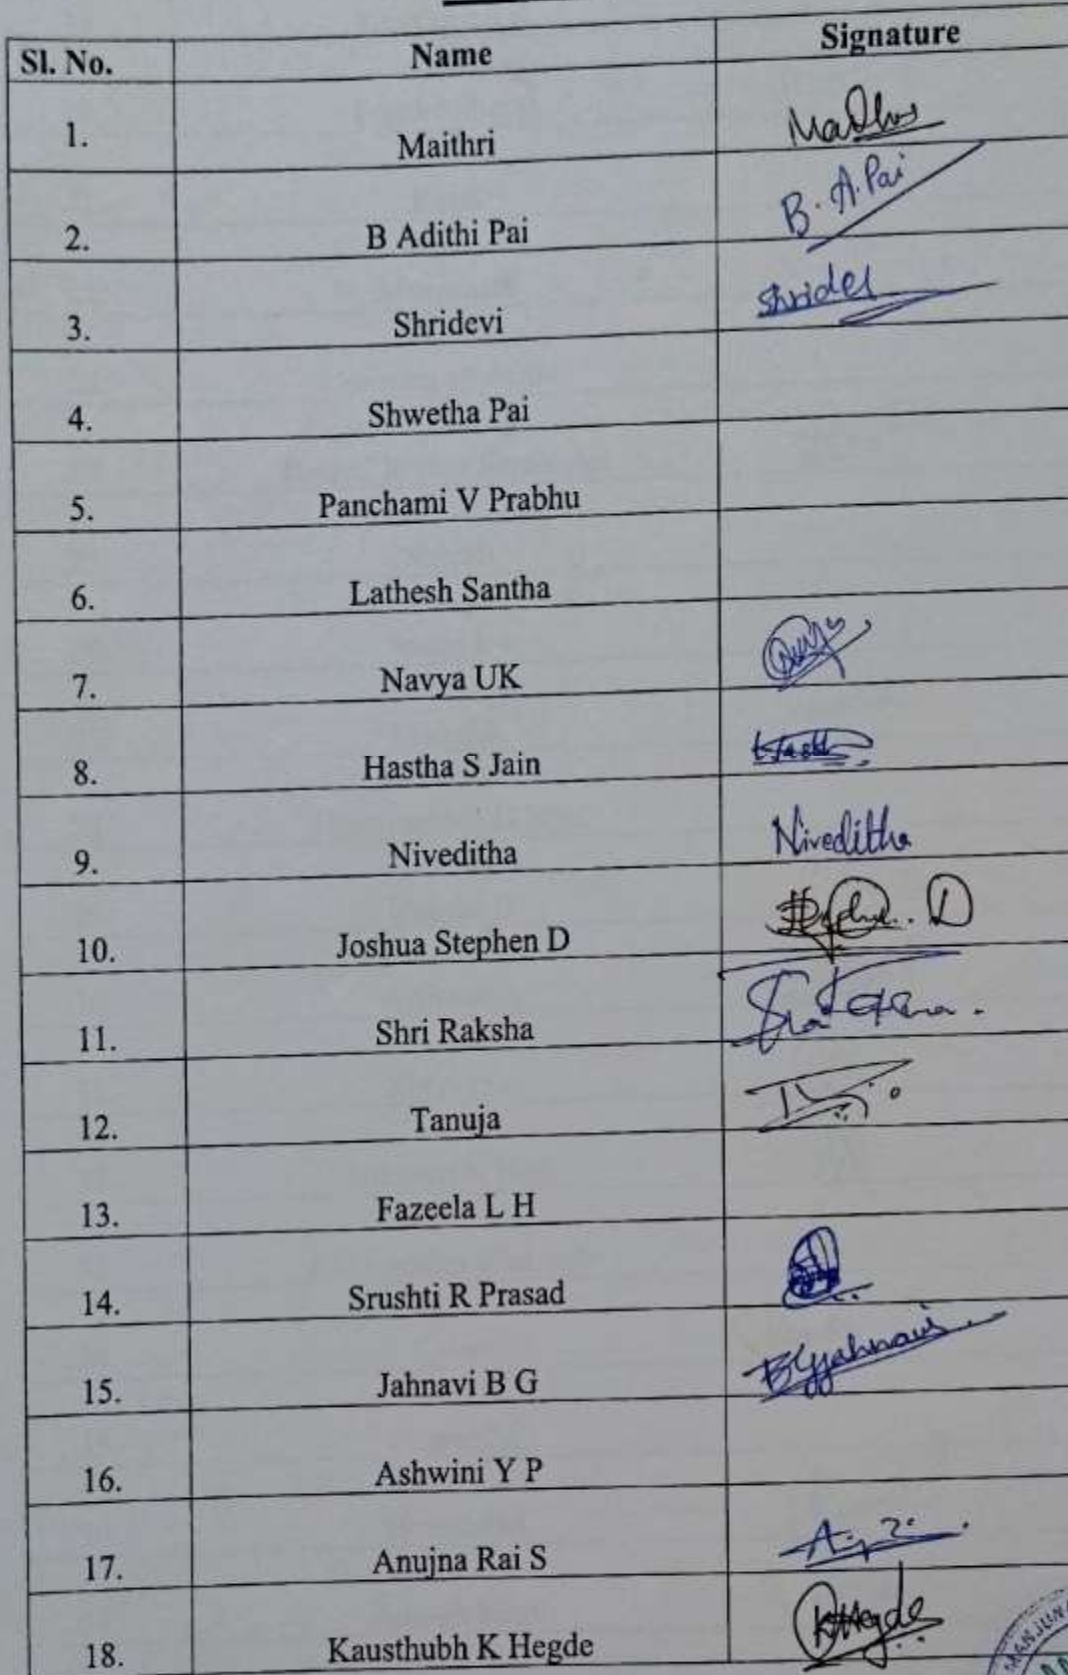 Sl. No. Name Signature
1. Maithri
2. B Adithi Pai B. A. Pai
3. Shridevi
4. Shwetha Pai
5. Panchami V Prabhu
6. Lathesh Santha
7. Navya UK
8. Hastha S Jain
9. Niveditha Niveditha
10. Joshua Stephen D D
11. Shri Raksha
12. Tanuja
13. Fazeela L H
14. Srushti R Prasad
15. Jahnavi B G BGjahnavi
16. Ashwini Y P
17. Anujna Rai S
18. Kausthubh K Hegde KHegde